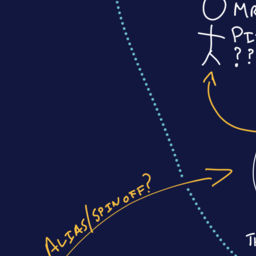 MR
PI
??
ALIAS/SPINOFF?
T